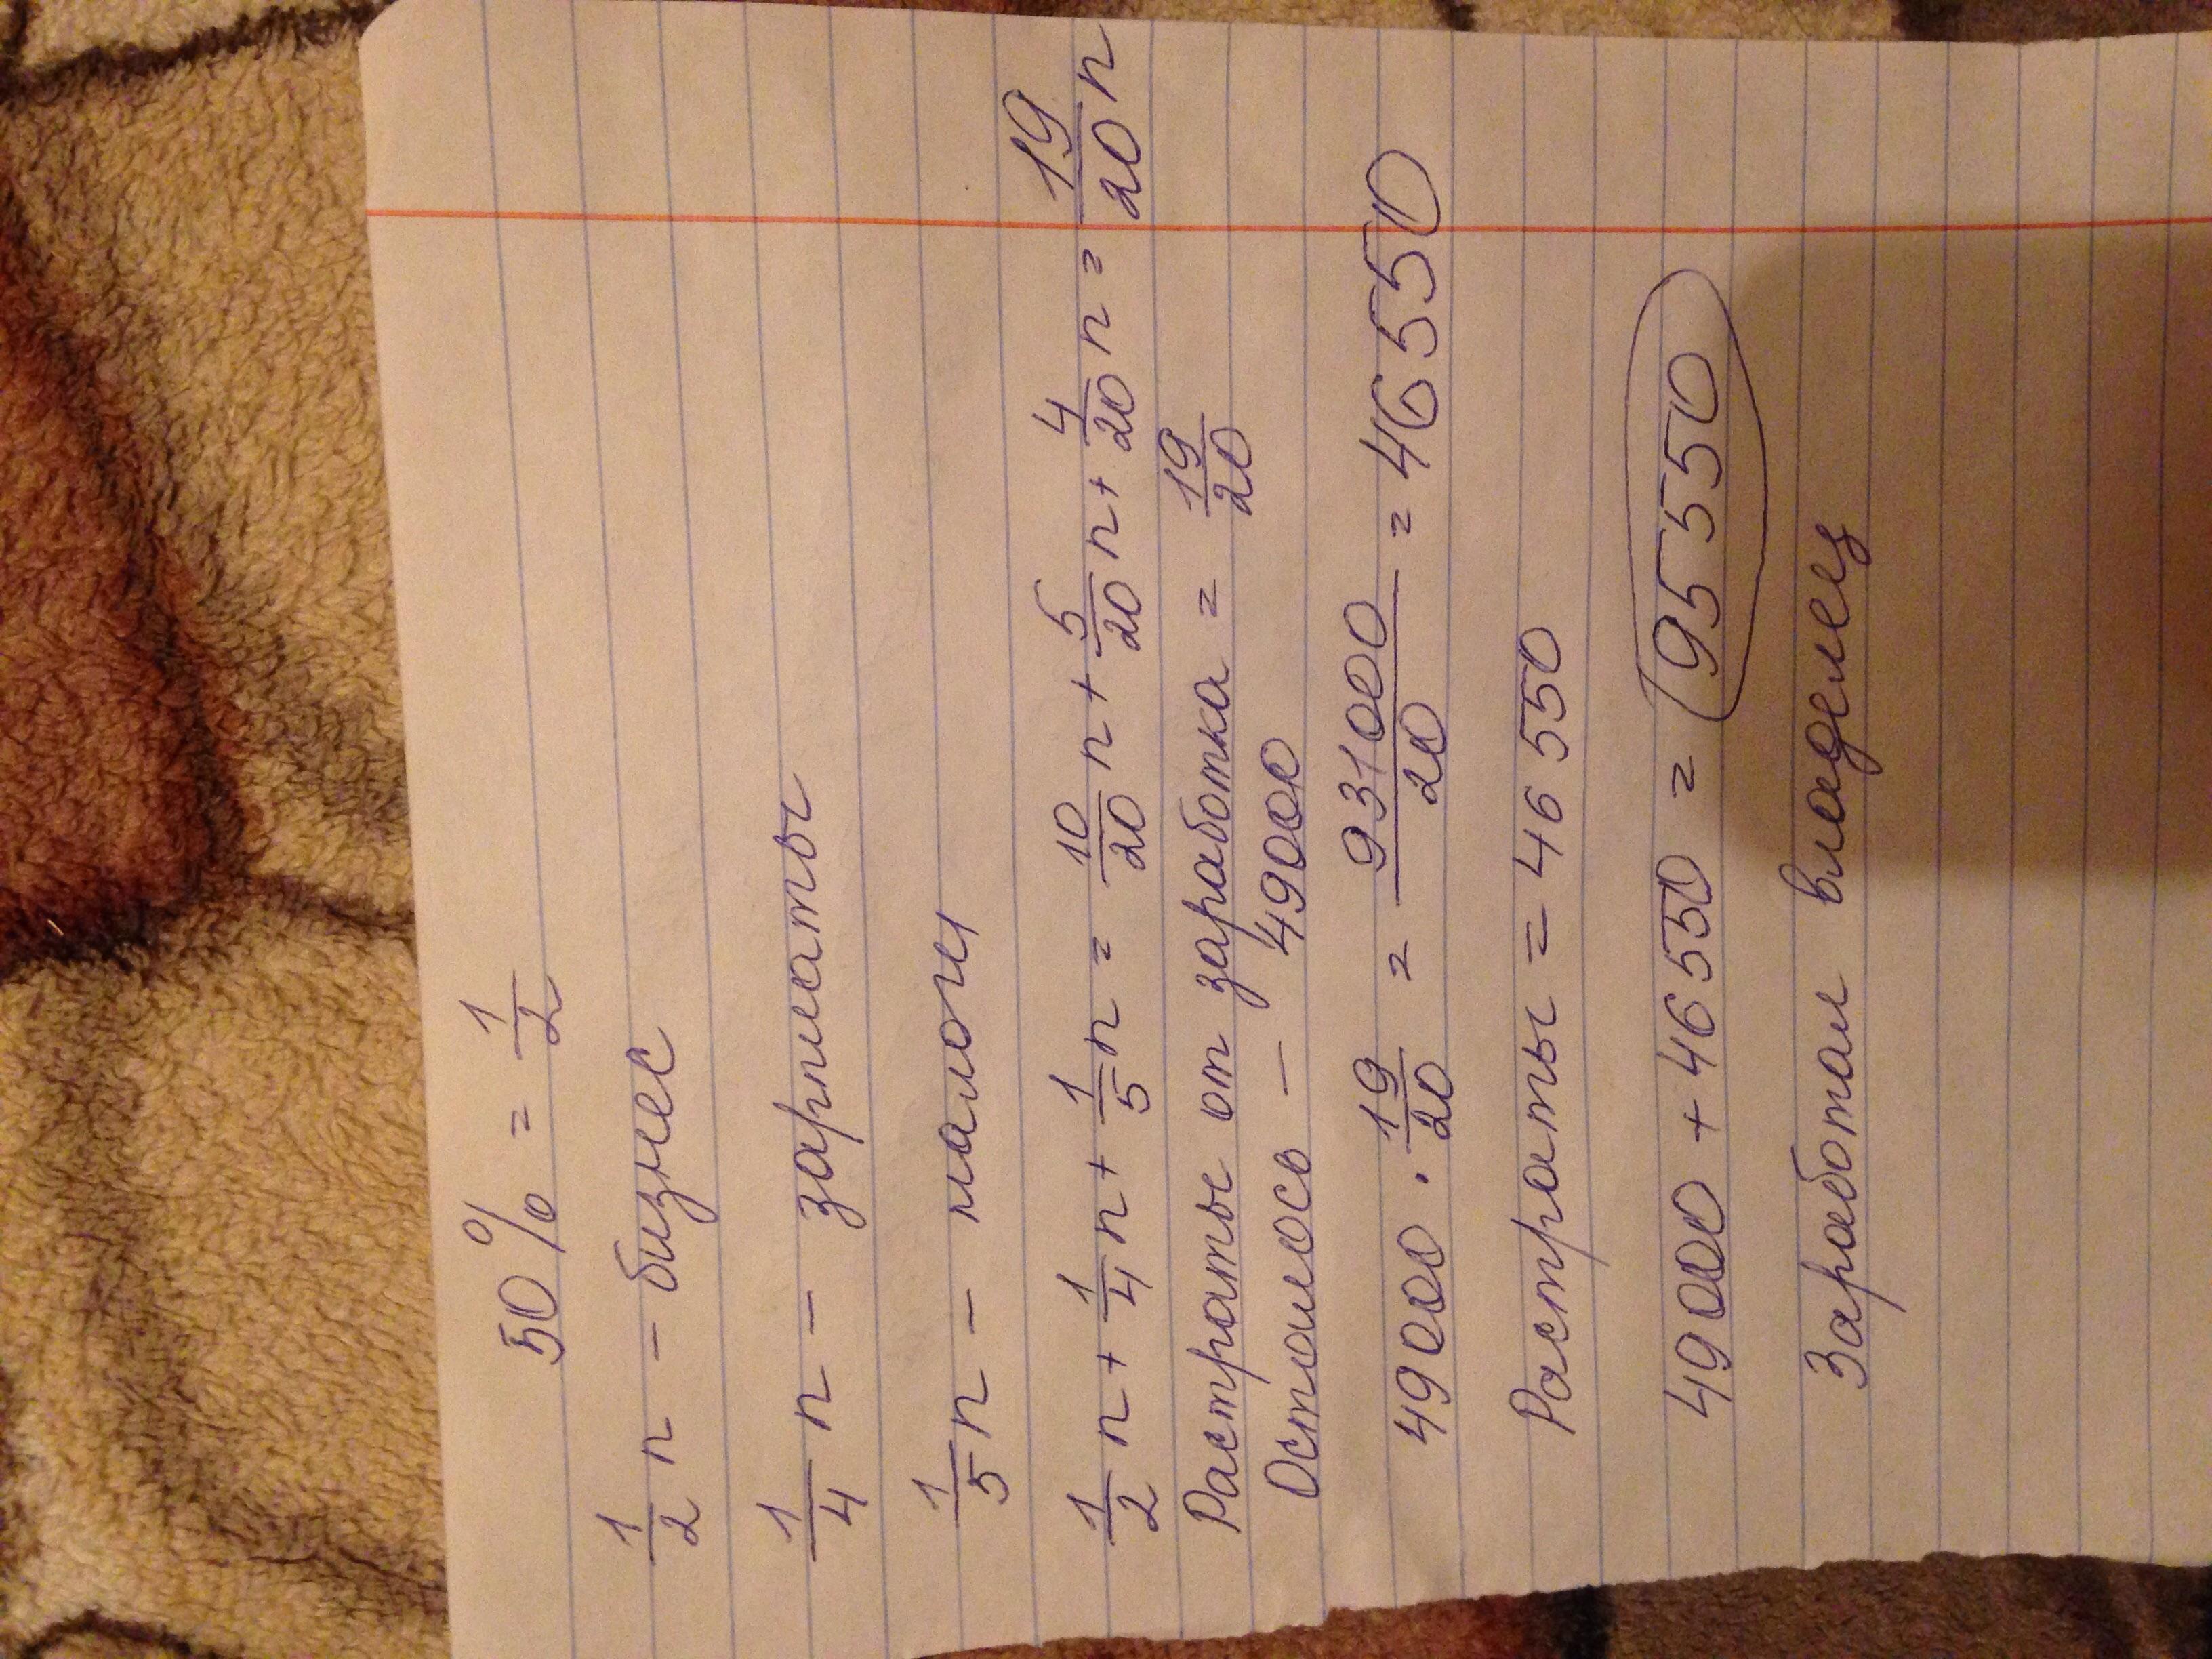 50% = 1/2
1/2 n - бизнес
1/4 n - зарплаты
1/5 n - налоги
1/2 n + 1/4 n + 1/5 n = 10/20 n + 5/20 n + 4/20 n = 19/20 n
Растраты от заработка = 19/20
Осталось - 49000
49000 · 19/20 = 931000/20 = 46550
Растраты = 46 550
49000 + 46550 = 95550
Заработал владелец